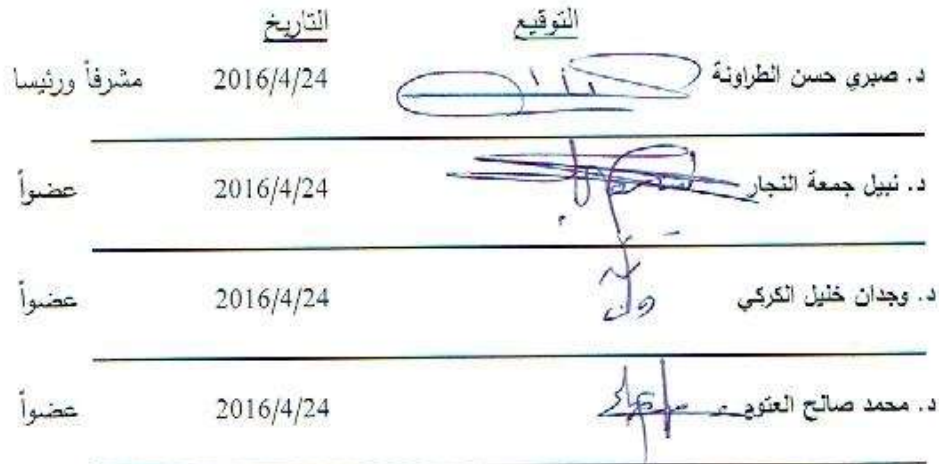 التوقيع التاريخ
د. صبري حسن الطراونة 2016/4/24 مشرفاً ورئيسا
د. نبيل جمعة النجار 2016/4/24 عضواً
د. وجدان خليل الكركي 2016/4/24 عضواً
د. محمد صالح العتوم 2016/4/24 عضواً